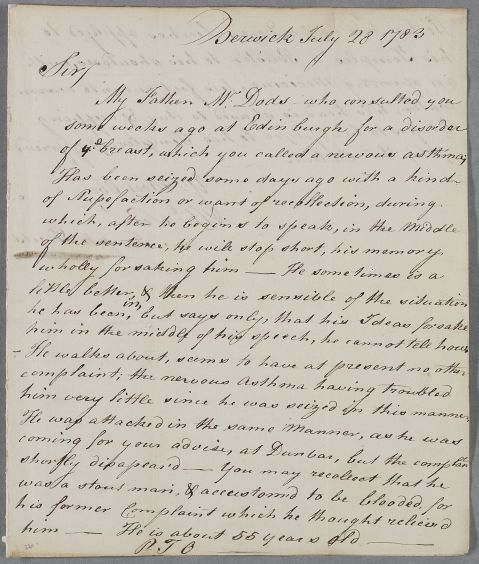 Berwick July 28 1783
Sir,
My Father Mr Dods who consulted you
some weeks ago at Edinburgh for a disorder
of ye breast, which you called a nervous asthma;
Has been seized some days ago with a kind
of Stupefaction or want of recollection, during
which, after he begins to speak, in the Middle
of the sentence, he will stop short, his memory
wholly forsaking him — He sometimes is a
little better, & then he is sensible of the situation
he has been in, but says only, that his Ideas forsake
him in the middle of his speech, he cannot tell how
– He walks about, seems to have at present no other
complaint; the nervous Asthma having troubled
him very little since he was seized in this manner.
He was attacked in the same Manner, as he was
coming for your advise, at Dunbar, but the complaint
shortly disapear'd — You may recollect that he
was a stout man, & accustomd to be blooded for
his former Complaint which he thought relieved
him — He is about 55 years old —
P.T.O